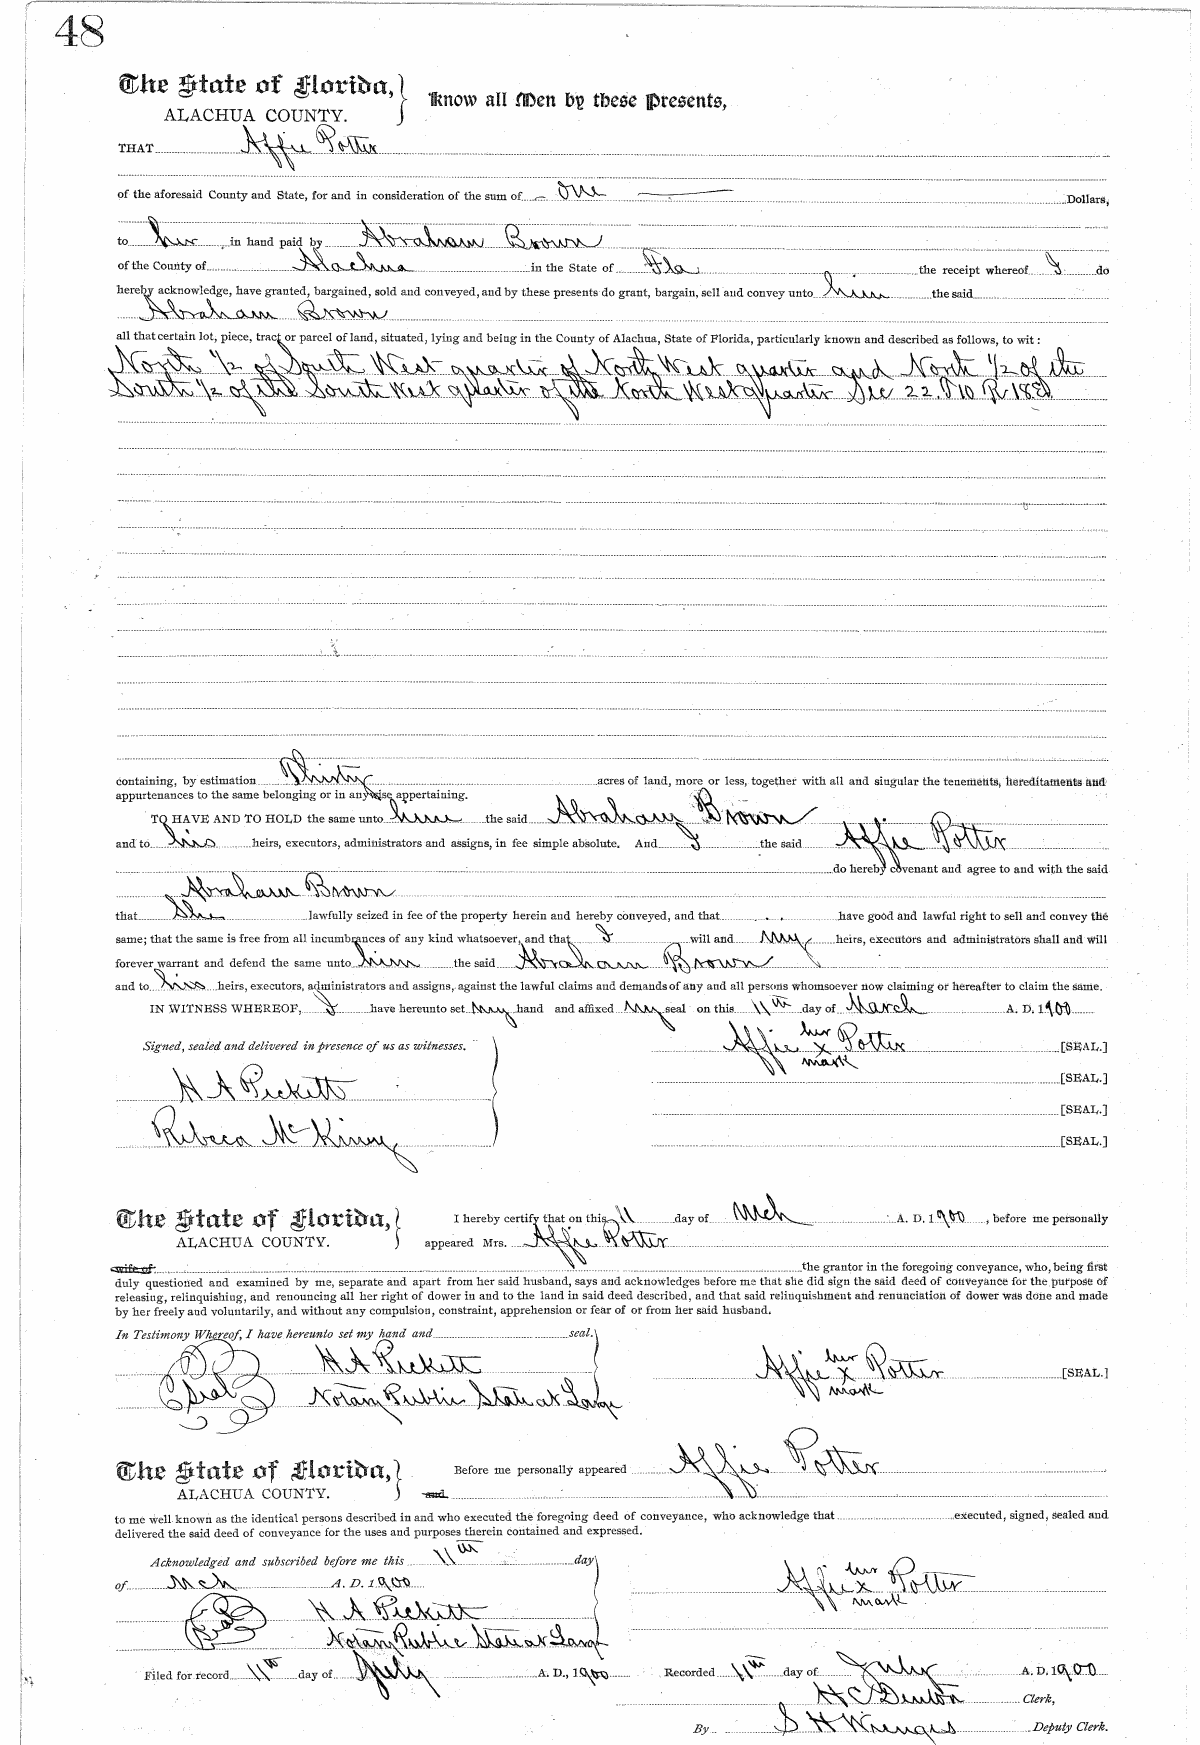 48
The State of Florida,
ALACHUA COUNTY.
Know all Men by these Presents,
THAT Affie Potter
of the aforesaid County and State, for and in consideration of the sum of one Dollars,
to her in hand paid by Abraham Brown
of the County of Alachua in the State of Fla the receipt whereof I do
hereby acknowledge, have granted, bargained, sold and conveyed, and by these presents do grant, bargain, sell and convey unto him the said
Abraham Brown
all that certain lot, piece, tract or parcel of land, situated, lying and being in the County of Alachua, State of Florida, particularly known and described as follows, to wit:
North 1/2 of South West quarter of North West quarter and North 1/2 of the
South 1/2 of the South West quarter of the North West quarter Sec 22. T 10 R 18 E
containing, by estimation Thirty acres of land, more or less, together with all and singular the tenements, hereditaments and
appurtenances to the same belonging or in anywise appertaining.
TO HAVE AND TO HOLD the same unto him the said Abraham Brown
and to his heirs, executors, administrators and assigns, in fee simple absolute. And I the said Affie Potter
do hereby covenant and agree to and with the said
Abraham Brown
that She lawfully seized in fee of the property herein and hereby conveyed, and that have good and lawful right to sell and convey the
same; that the same is free from all incumbrances of any kind whatsoever, and that I will and my heirs, executors and administrators shall and will
forever warrant and defend the same unto him the said Abraham Brown
and to his heirs, executors, administrators and assigns, against the lawful claims and demands of any and all persons whomsoever now claiming or hereafter to claim the same.
IN WITNESS WHEREOF, I have hereunto set my hand and affixed my seal on this 11th day of March A. D. 1900
Signed, sealed and delivered in presence of us as witnesses.
Affie her x mark Potter [SEAL.]
[SEAL.]
H A Pickett
[SEAL.]
Rebeca McKiney
[SEAL.]
The State of Florida,
ALACHUA COUNTY.
I hereby certify that on this 11 day of Mch A. D. 1900, before me personally
appeared Mrs. Affie Potter
wife of the grantor in the foregoing conveyance, who, being first
duly questioned and examined by me, separate and apart from her said husband, says and acknowledges before me that she did sign the said deed of conveyance for the purpose of
releasing, relinquishing, and renouncing all her right of dower in and to the land in said deed described, and that said relinquishment and renunciation of dower was done and made
by her freely and voluntarily, and without any compulsion, constraint, apprehension or fear of or from her said husband.
In Testimony Whereof, I have hereunto set my hand and seal.
H A Pickett
Affie her x mark Potter [SEAL.]
Seal
Notary Public State at Large
The State of Florida,
ALACHUA COUNTY.
Before me personally appeared Affie Potter
and
to me well known as the identical persons described in and who executed the foregoing deed of conveyance, who acknowledge that executed, signed, sealed and
delivered the said deed of conveyance for the uses and purposes therein contained and expressed.
Acknowledged and subscribed before me this 11th day
of Mch A. D. 1900
Affie her x mark Potter
Seal
H A Pickett
Notary Public State at Large
Filed for record 11th day of July A. D., 1900 Recorded 11th day of July A. D. 1900
H C Denton Clerk,
By S H Wienges Deputy Clerk.